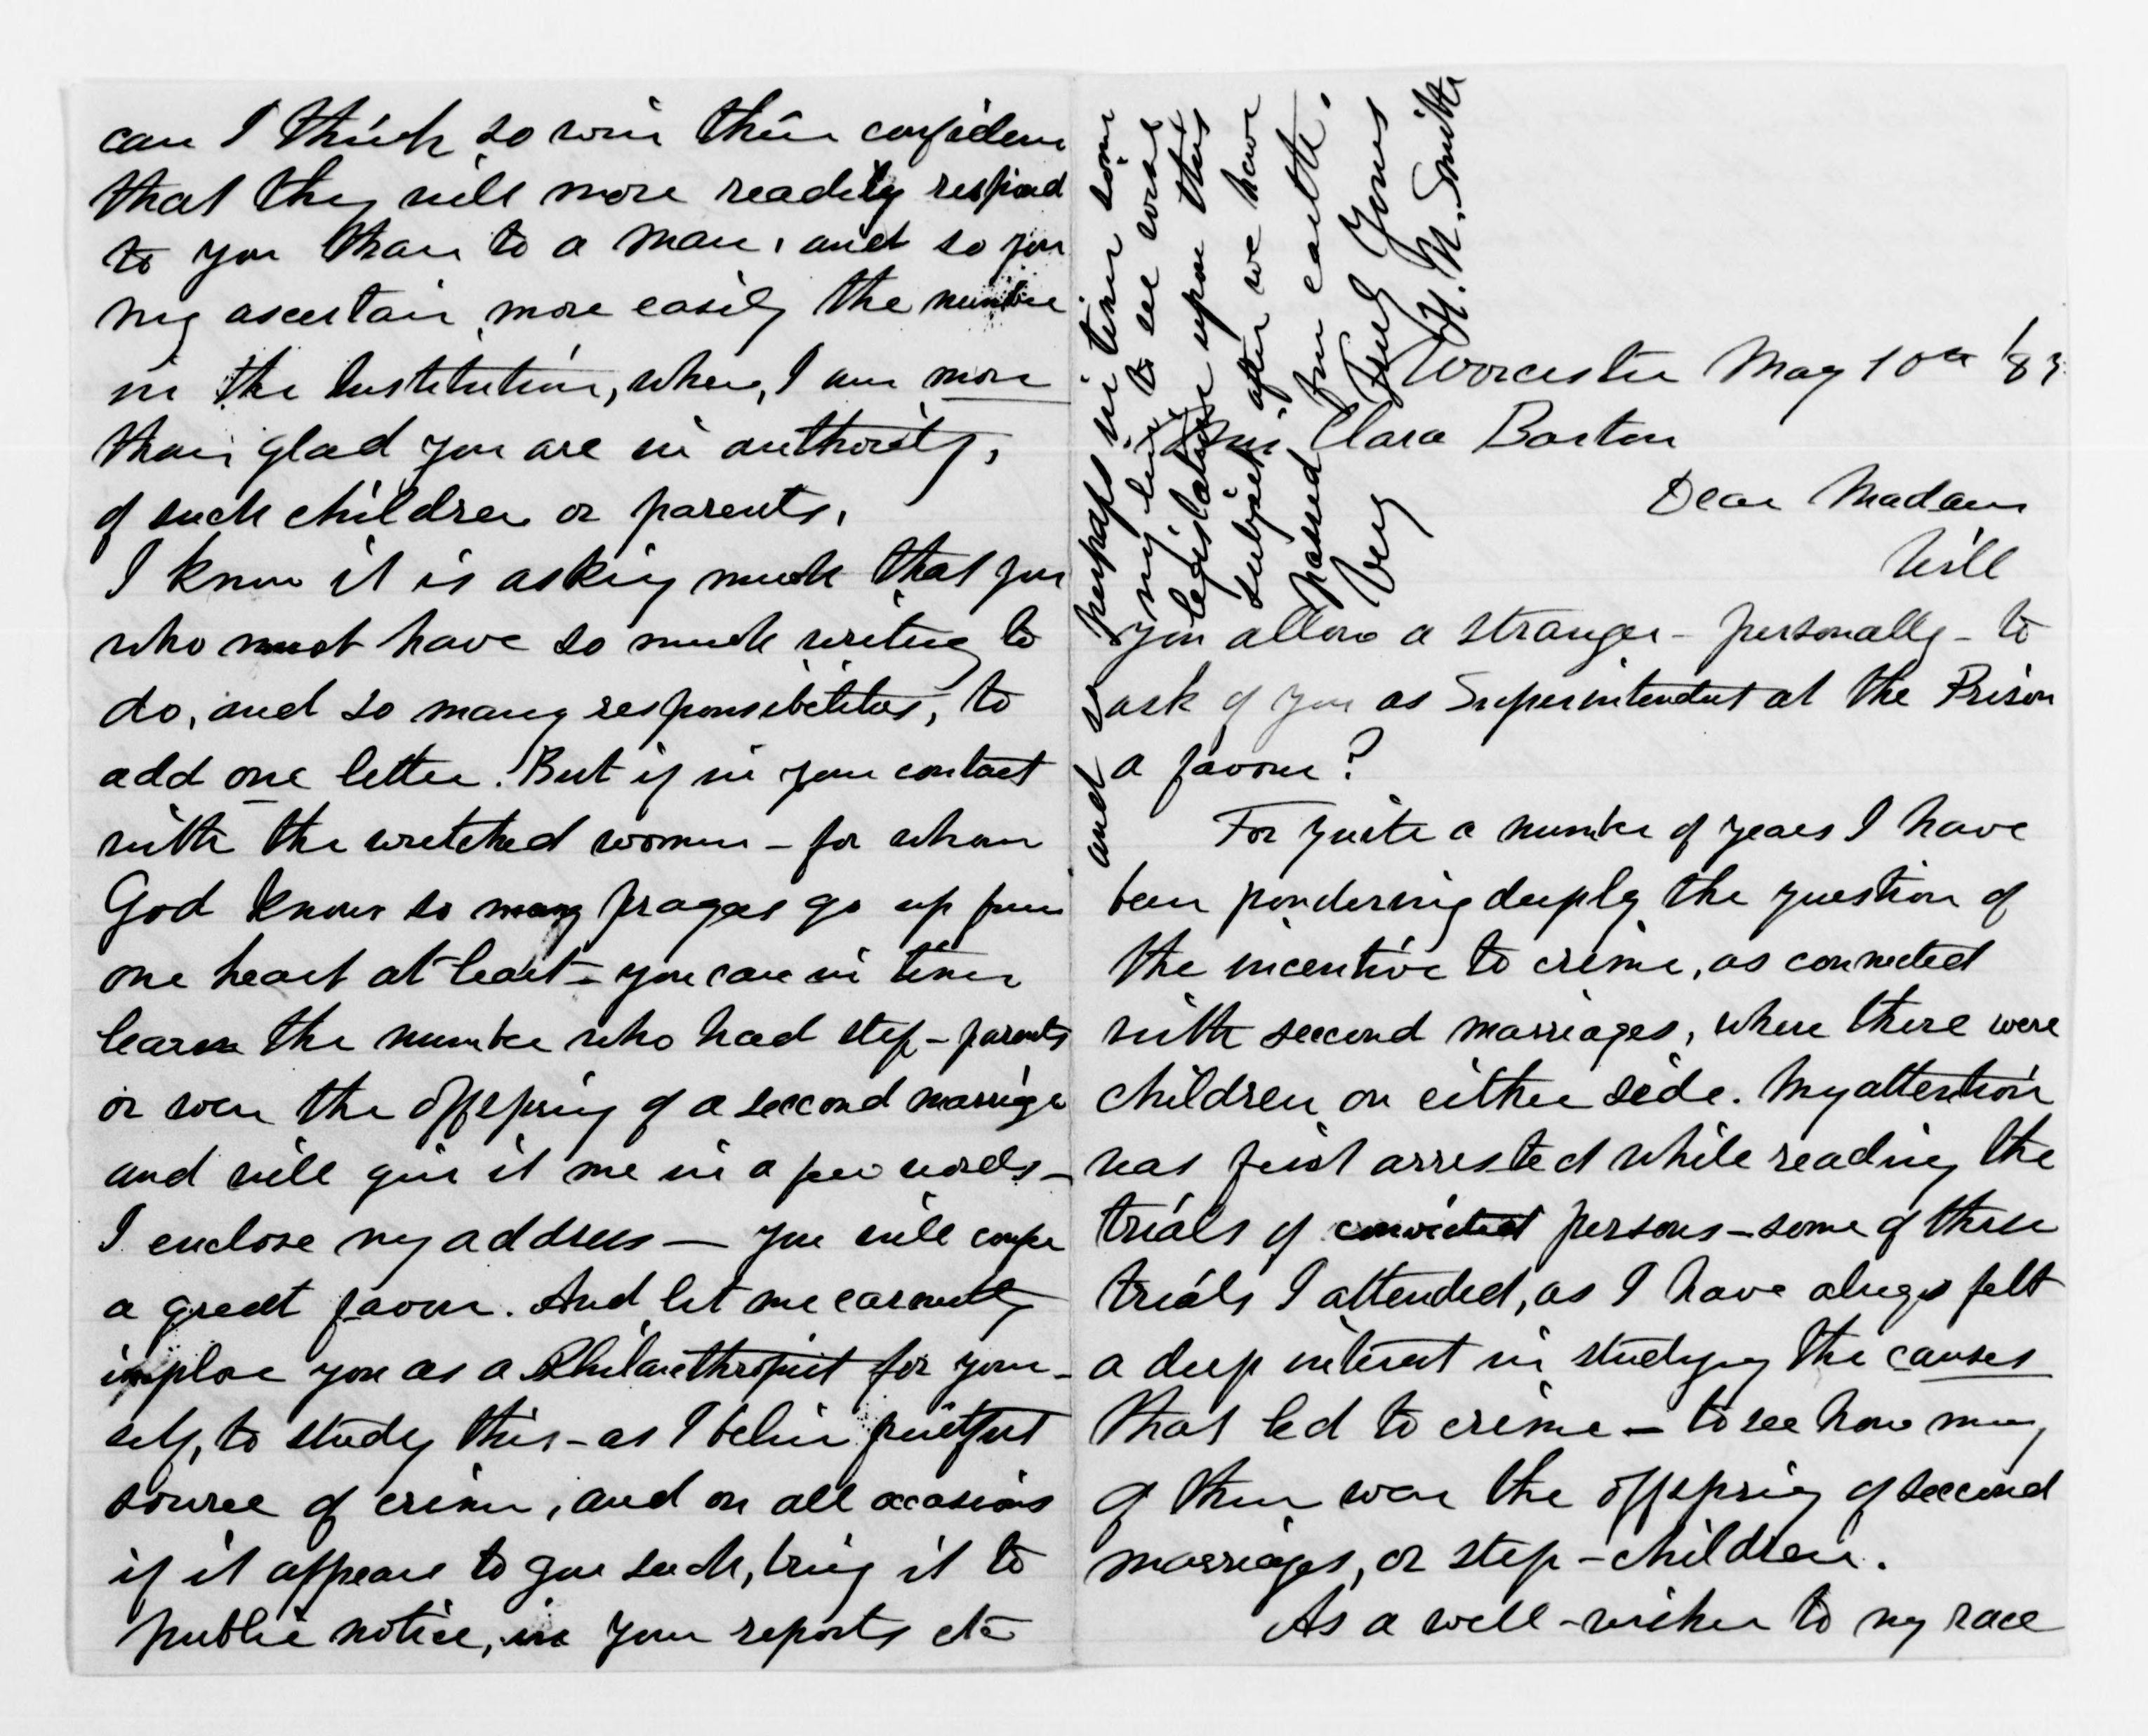 Worcester May 10th /83
Miss Clara Barton
Dear Madam
Will
you allow a stranger - personally - to
ask of you as Superintendent at the Prison
a favour?
For quite a number of years I have
been pondering deeply the question of
the incentive to crime, as connected
with second marriages, where there were
children on either side. My attention
was first arrested while reading the
trials of convicted persons - some of these
trials I attended, as I have always felt
a deep interest in studying the causes
that led to crime - to see how many
of them were the offspring of second
marriages, or step-children.
As a well-wisher to my race
can I think so win their confidence
that they will more readily respond
to you than to a man, and so you
my ascertain more easily the number
in the Institution, where, I am more
than glad you are in authority,
of such children or parents.
I know it is asking much that you
who must have so much writing to
do, and so many responsibilities, to
add one letter. But if in your contact
with the wretched women - for whom
God knows so many prayers go up from
one heart at least - you can in time
learn the number who had step-parents
or were the offspring of a second marriage
and will give it me in a few words -
I enclose my address - you will confer
a great favour. And let me earnestly
implore you as a Philanthropist for your-
self, to study this - as I believe fruitful
source of crime, and on all occasions
if it appears to you such, bring it to
public notice, in your reports etc
and so perhaps in time some
may live to see some
legislature upon this
subject after we have
passed from earth.
Very Truly Yours
H. N. Smith